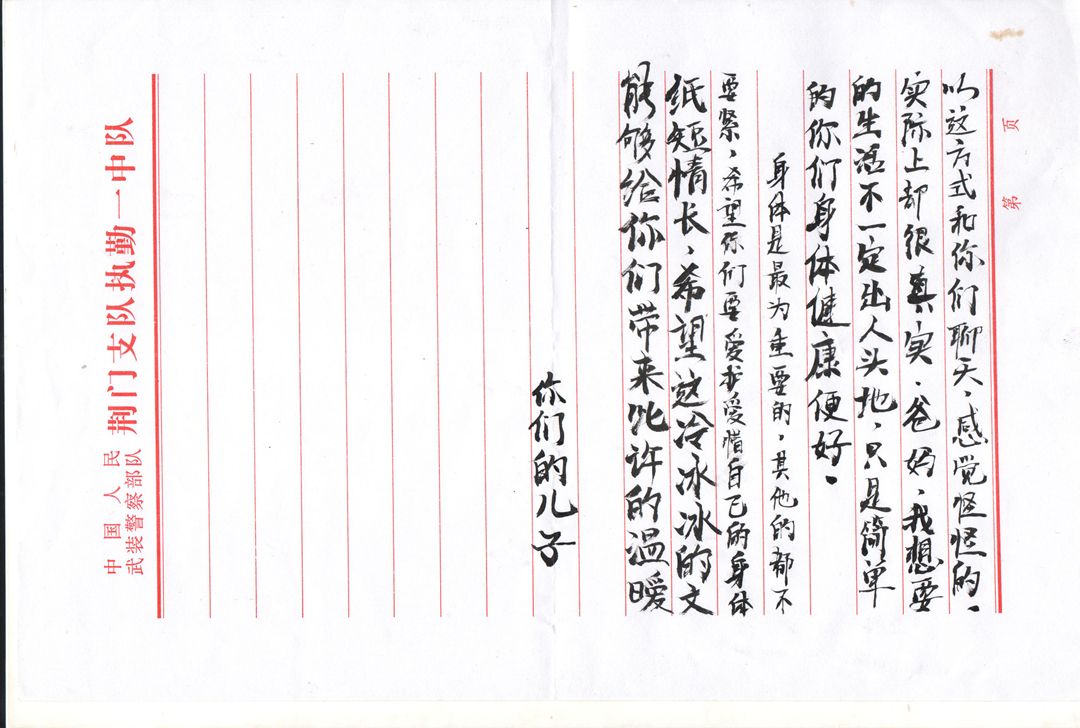 第 页
以这方式和你们聊天，感觉怪怪的，
实际上却很真实，爸妈，我想要
的生活不一定出人头地，只是简单
的你们身体健康便好。
身体是最为重要的，其他的都不
要紧，希望你们要爱护爱惜自己的身体
纸短情长，希望这冷冰冰的文
能够给你们带来些许的温暖
你们的儿子
中国人民
武装警察部队
荆门支队执勤一中队